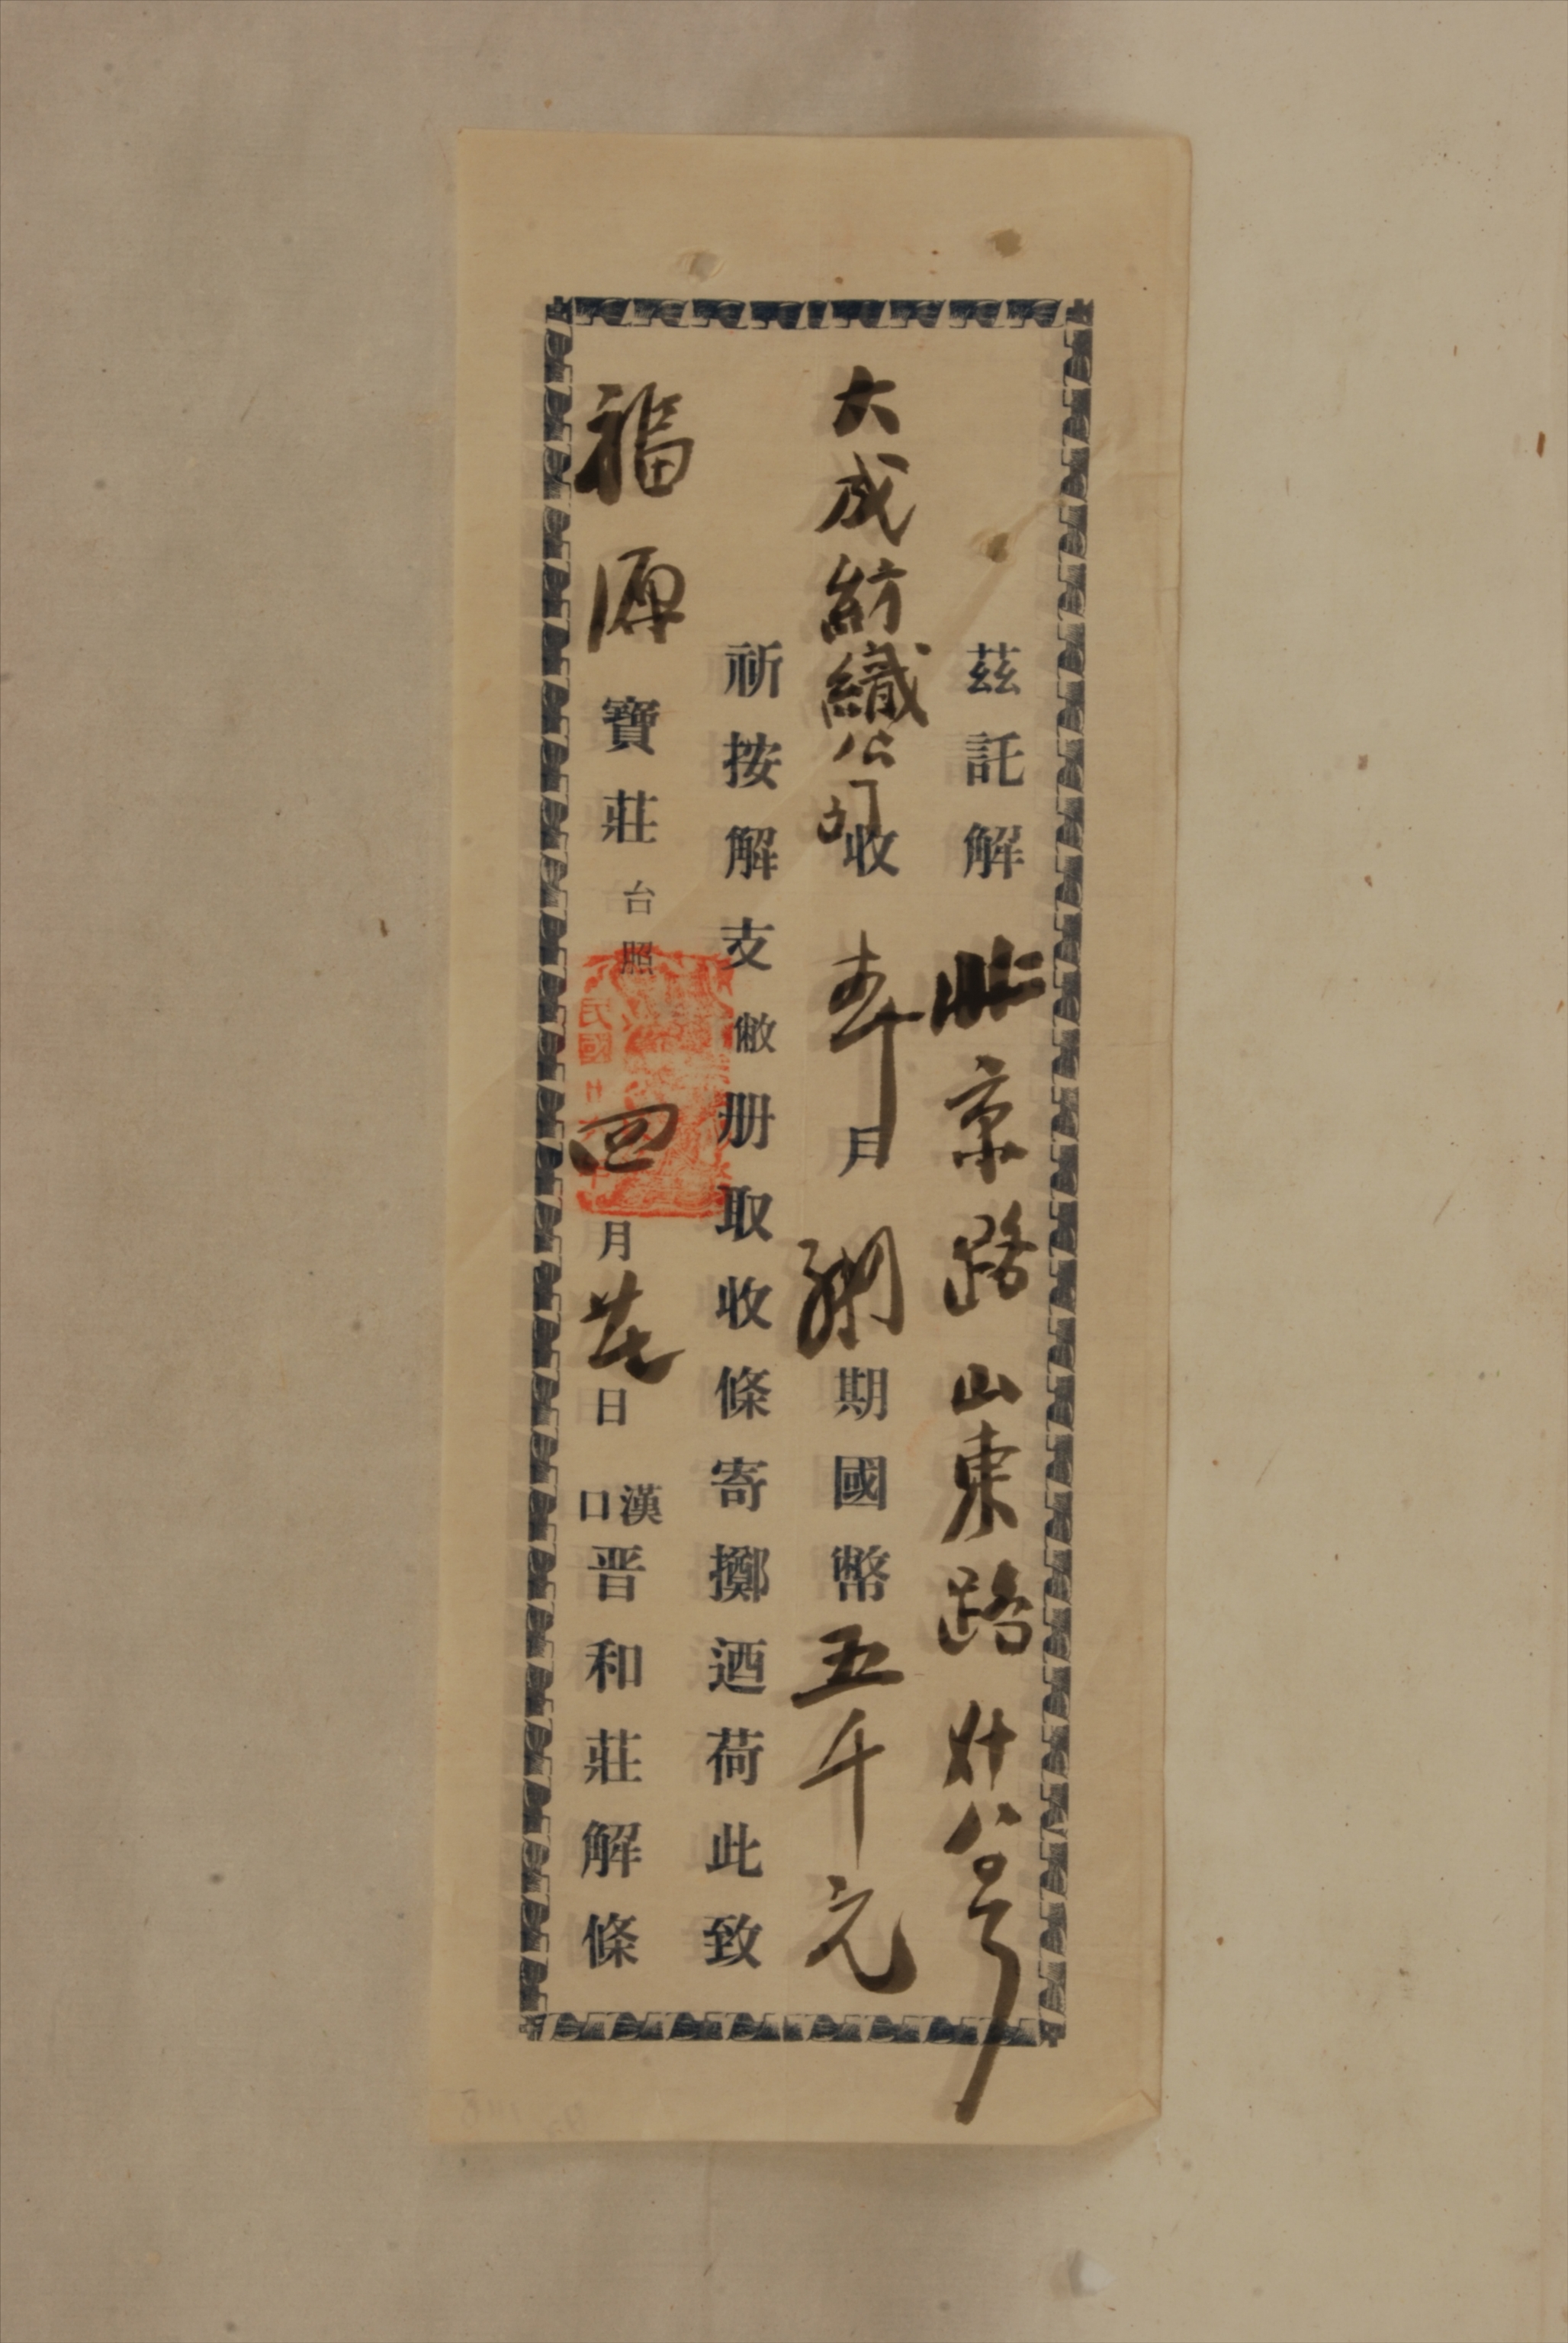 茲託解北京路山東路廿八号
大成紡織公司收 月 期國幣五千元
祈按解支敝册取收條寄擲迺荷此致
福源寶莊台照
民國廿六年四月廿七日漢口晋和莊解條